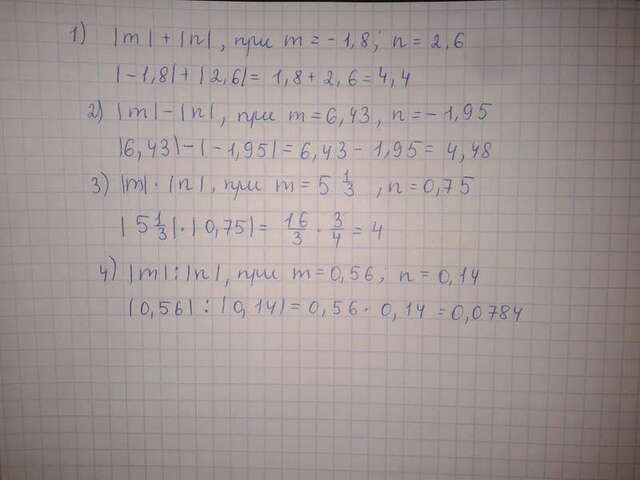 1) |m| + |n|, при m = -1,8; n = 2,6
|-1,8| + |2,6| = 1,8 + 2,6 = 4,4
2) |m| - |n|, при m = 6,43, n = -1,95
|6,43| - |-1,95| = 6,43 - 1,95 = 4,48
3) |m| · |n|, при m = 5 1/3, n = 0,75
|5 1/3| · |0,75| = 16/3 · 3/4 = 4
4) |m| : |n|, при m = 0,56; n = 0,14
|0,56| : |0,14| = 0,56 · 0,14 = 0,0784